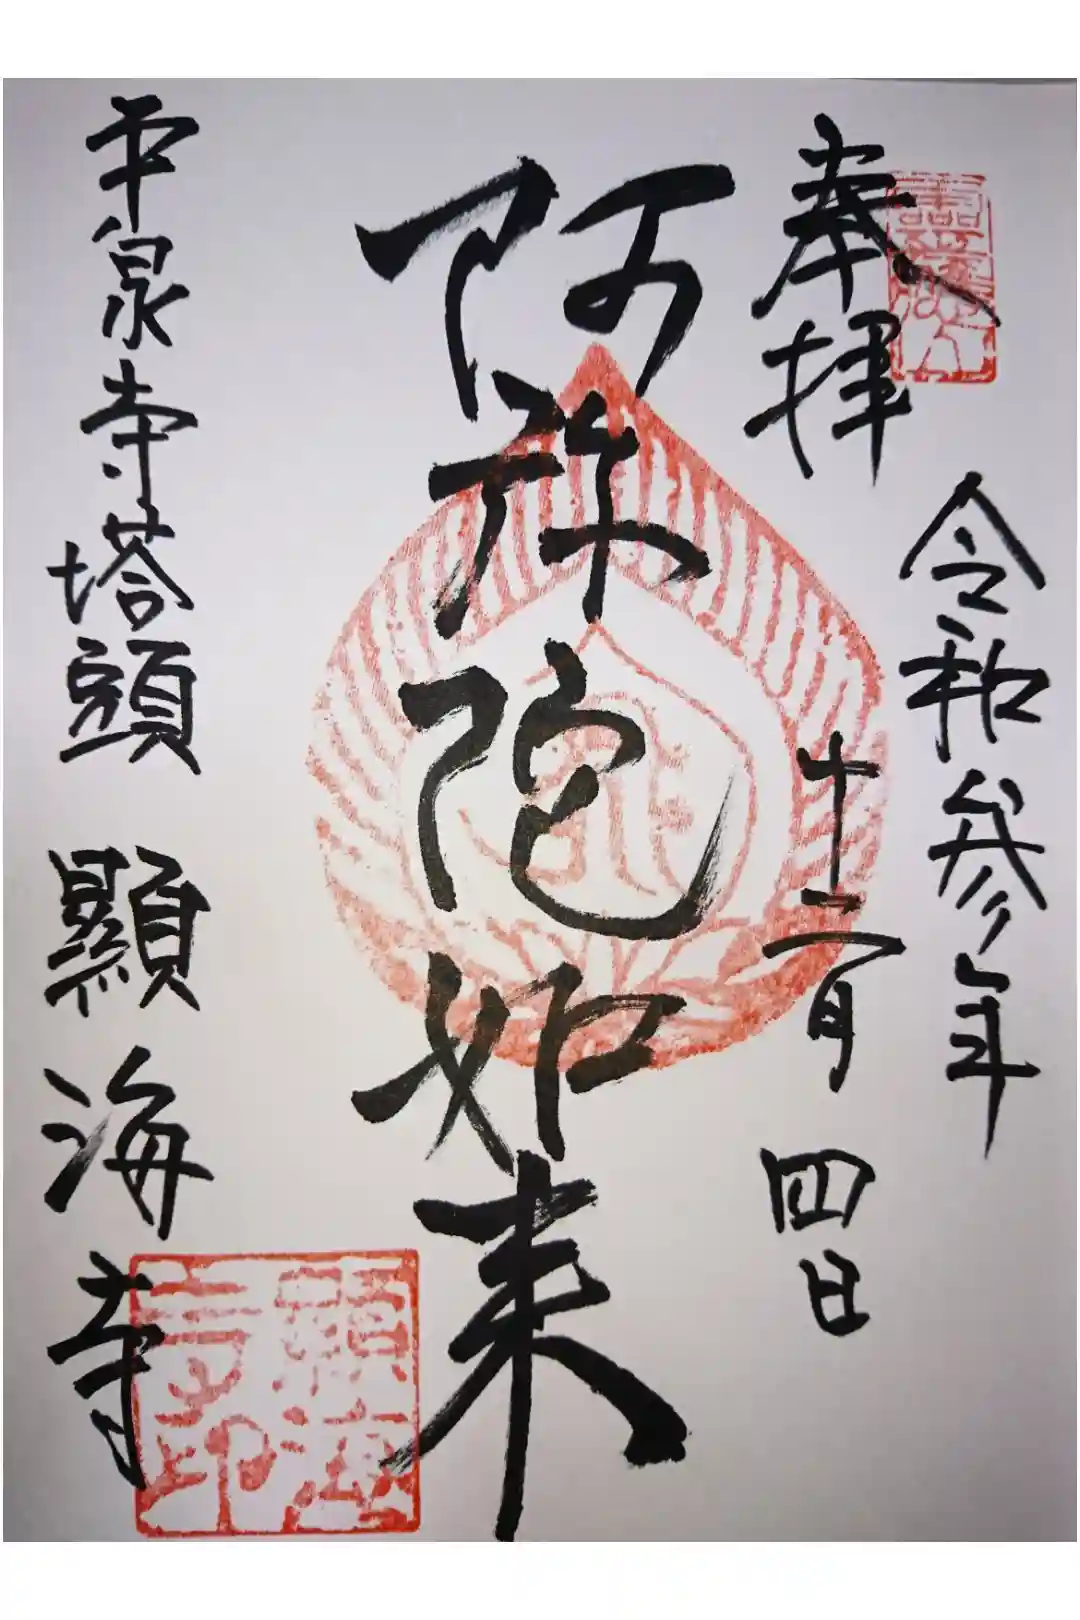 奉拝
令和参年
十二月四日
阿弥陀如来
平泉寺塔頭 顯海寺
顯海寺印